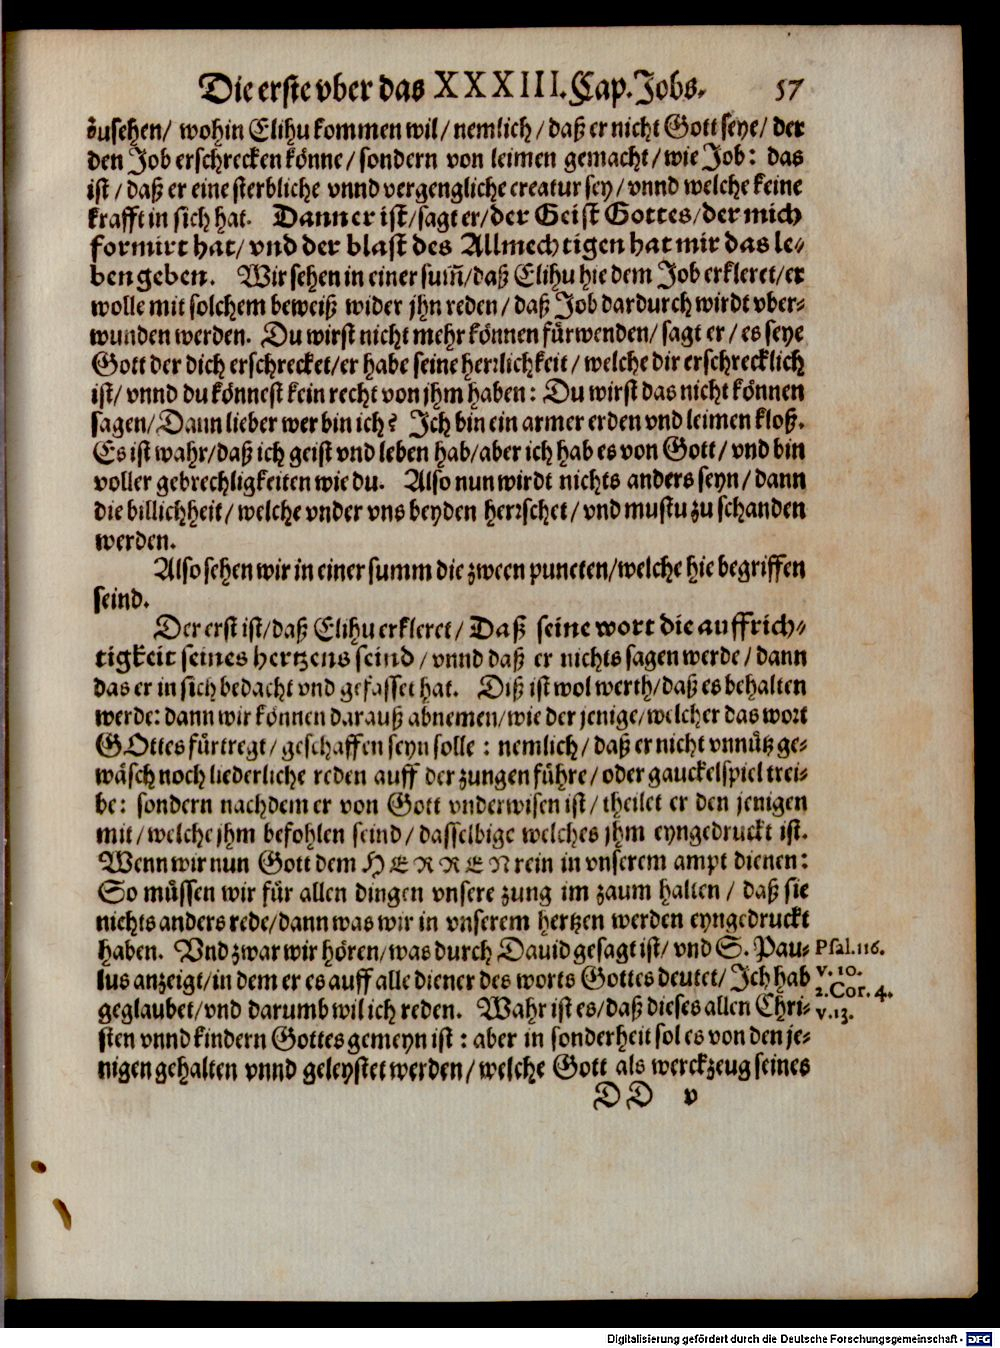 Die erste vber das XXXIII. Cap. Jobs. 57
zusehen/ wohin Elihu kommen wil/ nemlich/ daß er nicht Gott seye/ der
den Job erschrecken könne/ sondern von leimen gemacht/ wie Job: das
ist/ daß er eine sterbliche vnnd vergengliche creatur sey/ vnnd welche keine
krafft in sich hat. Danner ist/ sagt er/ der Geist Gottes/ der mich
formirt hat/ vnd der blast des Allmechtigen hat mir das le-
ben geben. Wir sehen in einer sum̃/ daß Elihu hie dem Job erkleret/ er
wolle mit solchem beweiß wider jhn reden/ daß Job dardurch wirdt vber-
wunden werden. Du wirst nicht mehr können fürwenden/ sagt er/ es seye
Gott der dich erschrecket/ er habe seine herrlichkeit/ welche dir erschrecklich
ist/ vnnd du könnest kein recht von jhm haben: Du wirst das nicht können
sagen/ Dann lieber wer bin ich? Ich bin ein armer erden vnd leimen kloß.
Es ist wahr/ daß ich geist vnd leben hab/ aber ich hab es von Gott/ vnd bin
voller gebrechligkeiten wie du. Also nun wirdt nichts anders seyn/ dann
die billichheit/ welche vnder vns beyden herrschet/ vnd mustu zu schanden
werden.
Also sehen wir in einer summ die zween puncten/ welche hie begriffen
seind.
Der erst ist/ daß Elihu erkleret/ Daß seine wort die auffrich-
tigkeit seines hertzens seind/ vnnd daß er nichts sagen werde/ dann
das er in sich bedacht vnd gefasset hat. Diß ist wol werth/ daß es behalten
werde: dann wir können darauß abnemen/ wie der jenige/ welcher das wort
GOttes fürtregt/ geschaffen seyn solle: nemlich/ daß er nicht vnnütz ge-
wäsch noch liederliche reden auff der zungen führe/ oder gauckelspiel trei-
be: sondern nachdem er von Gott vnderwisen ist/ theilet er den jenigen
mit/ welche jhm befohlen seind/ dasselbige welches jhm eyngedruckt ist.
Wenn wir nun Gott dem HERREN rein in vnserem ampt dienen:
So müssen wir für allen dingen vnsere zung im zaum halten/ daß sie
nichts anders rede/ dann was wir in vnserem hertzen werden eyngedruckt
haben. Vnd zwar wir hören/ was durch Dauid gesagt ist/ vnd S. Pau-
lus anzeigt/ in dem er es auff alle diener des worts Gottes deutet/ Ich hab
geglaubet/ vnd darumb wil ich reden. Wahr ist es/ daß dieses allen Chri-
sten vnnd kindern Gottes gemeyn ist: aber in sonderheit sol es von den je-
nigen gehalten vnnd geleystet werden/ welche Gott als werckzeug seines
DD v
Psal. 116.
v. 10.
2. Cor. 4.
v. 13.
Digitalisierung gefördert durch die Deutsche Forschungsgemeinschaft - DFG